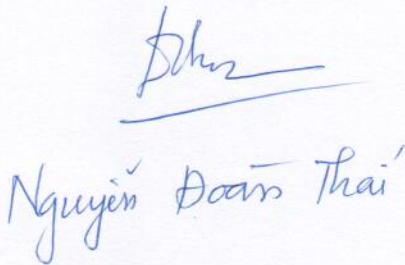 Nguyễn Đoàn Thái